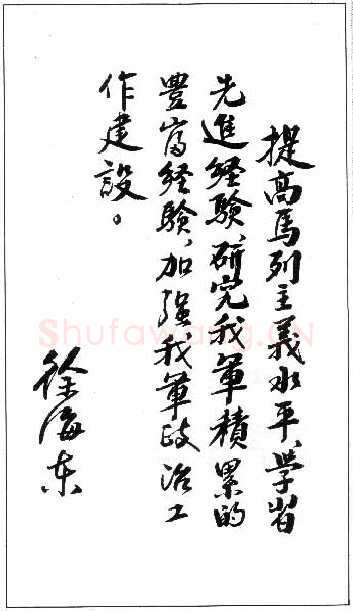 提高馬列主義水平、学習
先進経驗、研究我軍積累的
豐富経驗，加强我軍政治工
作建設。
徐海东
Shufawang.CN